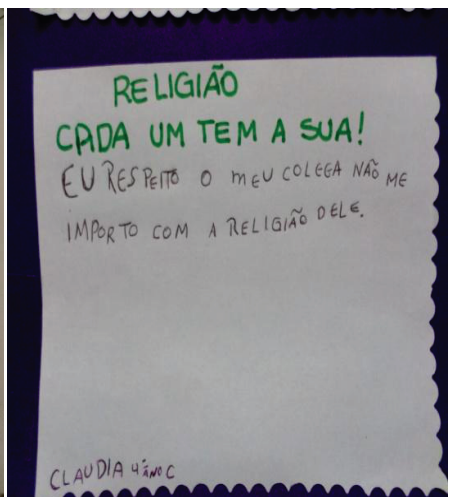 RELIGIÃO
CADA UM TEM A SUA!
EU RESPEITO O MEU COLEGA NÃO ME
IMPORTO COM A RELIGIÃO DELE.
CLAUDIA 4º ANO C